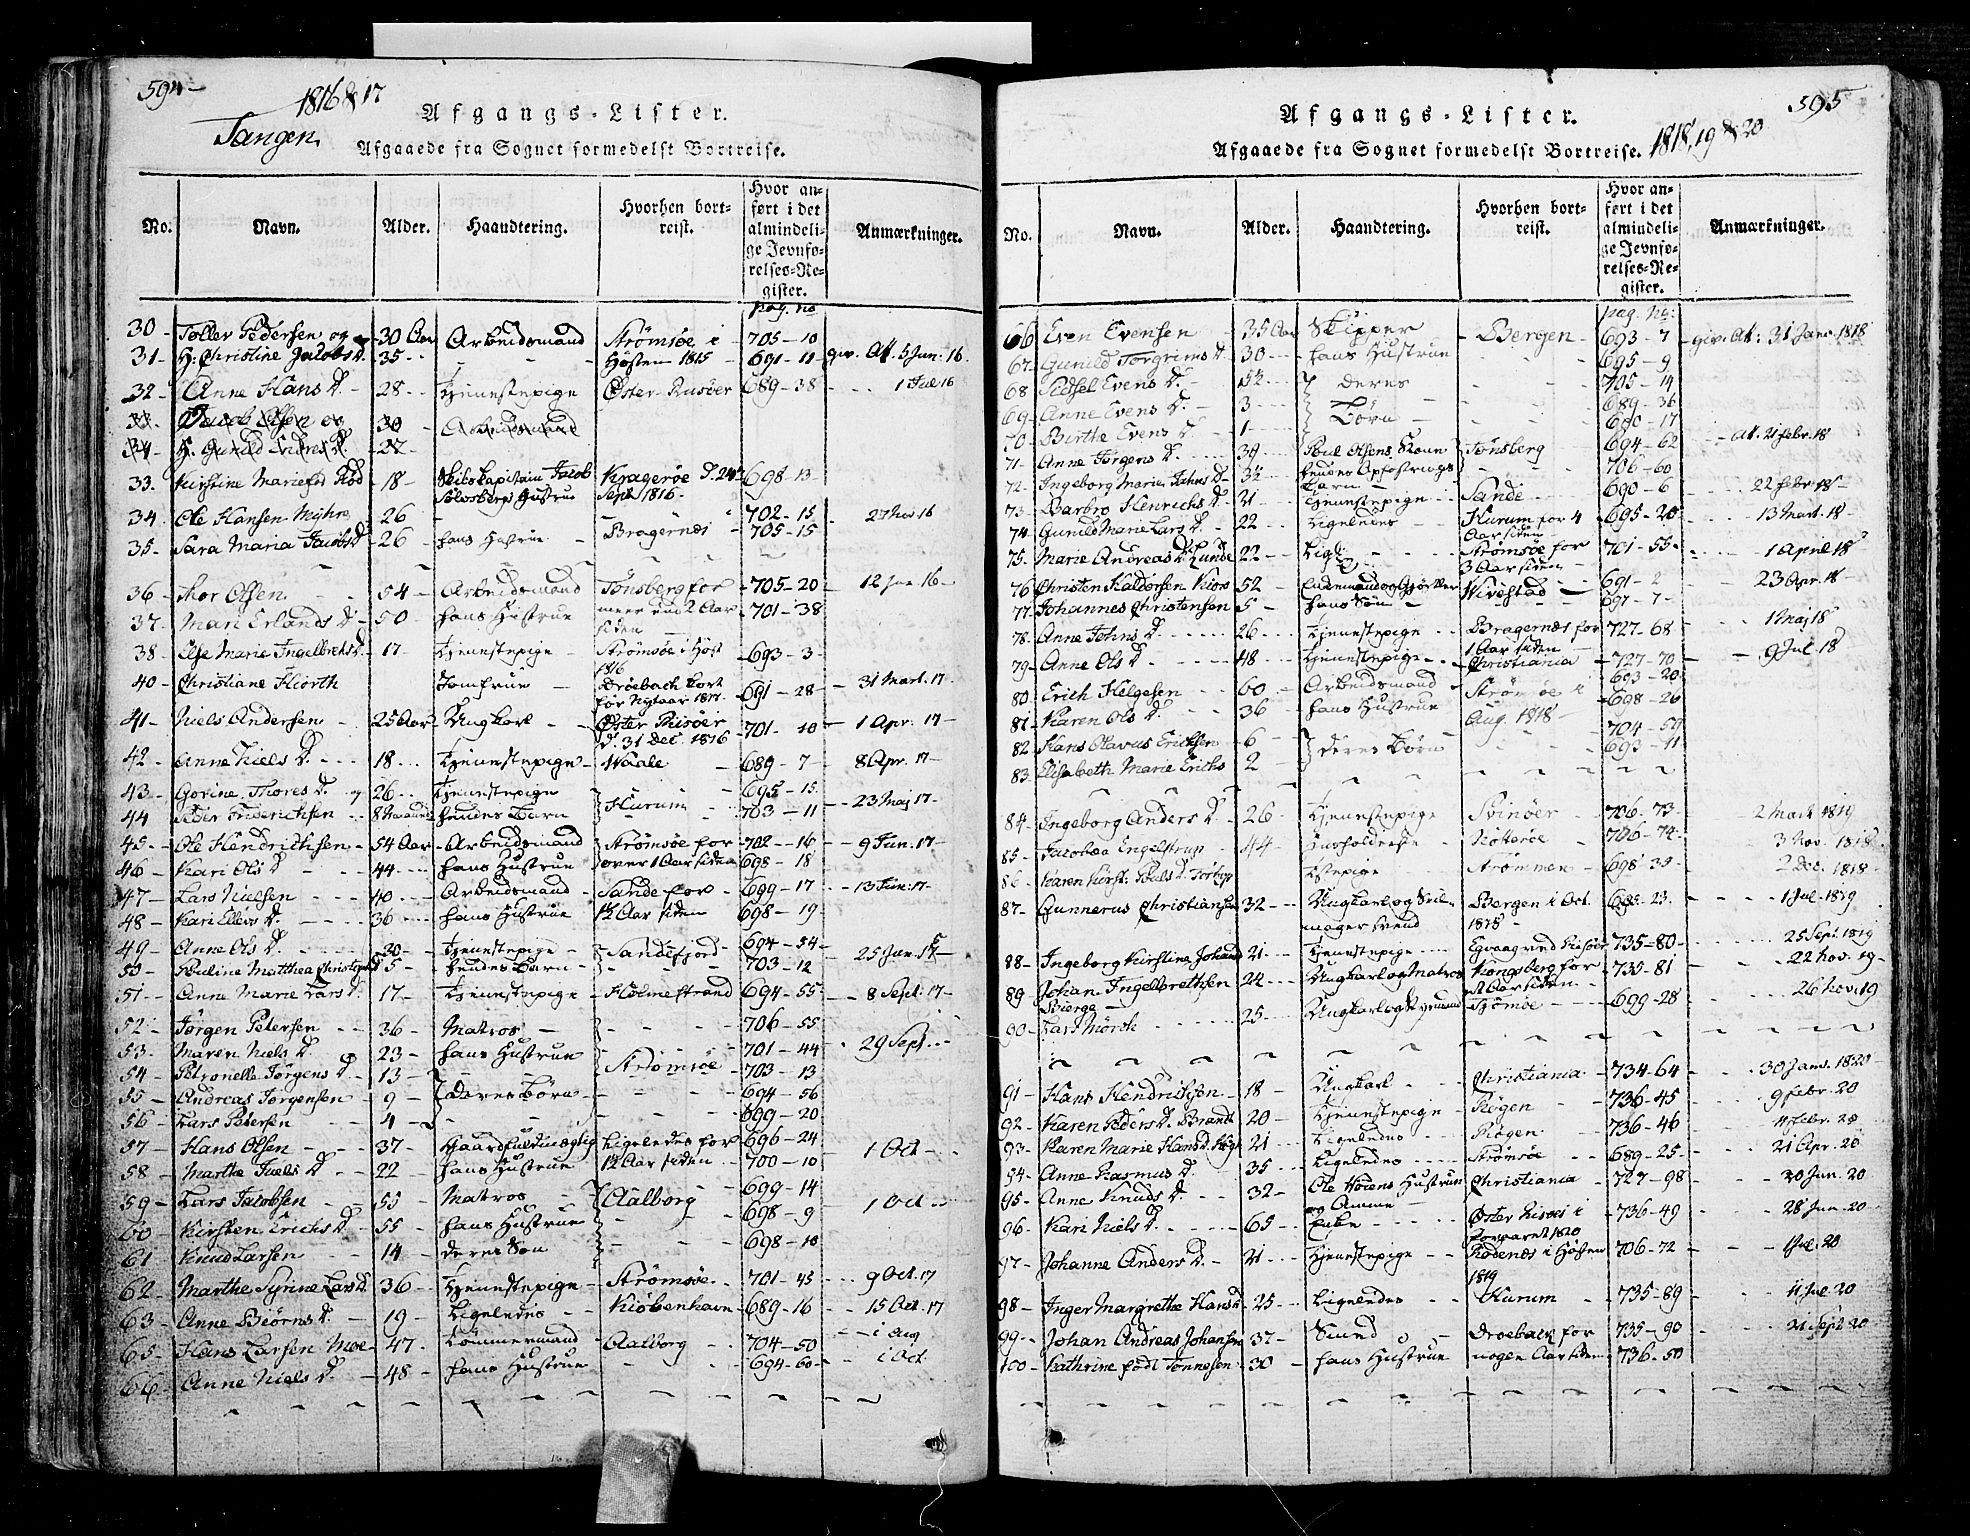 594
1816 & 17
Tangen
Afgangs-Lister.
Afgaaede fra Sognet formedelst Bortreise.
No. Navn. Alder. Haandtering. Hvorhen bortreist. Hvor anført i det almindelige Jevnførelses-Register. Anmærkninger.
pag. no
30 - Toller Pedersen og - 30 Aar Arbeidsmand Strømsøe i - 705 - 10
31 - H. Christine Jacobs D. - 35 - - Høsten 1815 - 691 - 11 giv. Att. 5 Jun. 16
32 - Anne Hans D. - 28 - - Tjenestepige Øster Rusøer 689 - 38 - - - 1 Jul 16
33. Jacob Olsen og 30 Arbeidsmand
34 H. Gunild D. - 27
33. Kirstine Marie fød - 18 - Skibskapitain Jacob Hustrue Kragerøe d. 24 Sept. 1816 - 698 - 13
34 - Ole Hansen Myhre 26 - - 702 - 15 - 27 Nov 16
35 - Sara Maria Jacobs D. - 26 - hans Hustrue - Bragernæs - 705 - 15
36 - Thor Olsen - 54 - Arbeidsmand Tønsberg for - 705 - 20 - 12 16 -
37 - Mari Erlands D. - 50 - hans Hustrue meer end 2 Aar siden - 701 - 38
38 - Else Marie Ingelbrehts D. - 17 - Tjenestepige - Strømsøe i Høst 1816 - 693 - 3 -
40 - Christiane Hiorth Jomfrue - Drøebach kort før Nytaar 1817 - 691 - 28 - - 31 Mart. 17 -
41 - Niels Andersen - 25 Aar - Ungkarl - - Øster Riisøer d. 31 Dec. 1816 - 701 - 10 - 1 Apr. 17 -
42 - Anne Niels D. - - - 18 - - Tjenestepige - Waale - 689 - 7 - - 8 Apr. 17 -
43 - Gorine Thores D. og - 26 - - Tjenestepige } Hurum - 695 - 15
44 Peder Friderichsen - - 8 hendes Barn - 703 - 11 - - 23 Maj 17 -
45 - Ole Hendrichsen - 54 Aar - Arbeidsmand - Strømsøe for - 702 - 16 - - 9 Jun. 17 -
46 - Kari Ols D. - - 44 - - hans Hustrue - over 1 Aar siden 698 - 18
47 - Lars Nielsen - - 40 - - Arbeidsmand - Sande for - 699 - 17 - - 13 Jun. 17 -
48 - Kari Ellevs D. - - 36 - - - hans Hustrue - 1½ Aar siden - 698 - 19
49 - Anne Ols D. - - - 30 - - Tjenestepige - } Sandefjord - 694 - 54
50 - Pauline Matthea 5 - - hendes Barn - - 703 - 12 - 25 Jun. 17 -
51 - Anne Marie Lars D. - 17 - - Tjenestepige - Holmestrand 694 - 55 - - 8 Sept. 17 -
52 - Jørgen Petersen - - 36 - Matros - - 706 - 55
53 - Maren Niels D. - 23 - hans Hustrue - 701 - 44 - 29 Sept. - -
54 - Petronelle Jørgens D. - 13 - - - Strømsøe - 703 - 13
55 - Andreas Jørgensen - 9 - } deres Børn - - 694 - 56
56 - Lars Petersen - 4 - - 699 - 20
57 - Hans Olsen - - - 37 - Ligeledes for - 696 - 24 1 Oct -
58 - Marthe Juels D. - - 22 hans Hustrue 1½ Aar siden - - 700 - 10
59 - Lars Jacobsen - 55 - Matros } Aalborg - 699 - 14
60 - Kirsten Erichs D. - 55 - hans Hustrue - 698 - 9 - 1 Oct - -
61 Knud Larsen - 14 - deres Søn - 698 - 10
62 - Marthe Syrine Lars D. 36 - Tjenestepige - Strømsøe - - 701 - 45 - - - 9 Oct. 17
63 - Anne Beørns D. - 19 - Ligeledes - Kiøbenhavn - 689 - 16 - - 15 Oct. 17
65 - Hans Larsen Moe - 47 - Tømmermand - Aalborg - 704 - 50 - - 1 Aug
66 - Anne Niels D. - 48 - hans Hustrue - 694 - 60 - - 1 Oct.
595
1818, 19 & 20
Afgangs-Lister.
Afgaaede fra Sognet formedelst Bortreise.
No. Navn. Alder. Haandtering. Hvorhen bortreist. Hvor anført i det almindelige Jevnførelses-Register. Anmærkninger.
pag. No:
66 - Even Evensen - 35 Aar - Skipper - Bergen - 693 - 7 - giv. Att: 31 Janv. 1818
67 - Gunild Torgrims D. - 30 - - - hans Hustrue - 695 - 9 -
68 Sidsel Evens D. - - } deres - 705 - 14
69 - Anne Evens D. - 3 - - - } Børn - 689 - 36
70 - Birthe Evens D. - 1 - - - 690 - 17
71 - Anne Jørgens D. - - - 34 - - Poul Olsens Kone Tønsberg 694 - 62 - - Att. 21 febr. 18
72 - Ingeborg Marie D. - - hendes Opfostrings Barn - - 706 - 60
73 - Barbro Henrichs D. - 21 - - - Tjenestepige - - Sande - - 690 - 6 - - - - 22 febr. 18 -
74 - Gunild Marie Lars D. - 22 - - - Ligeledes - Hurum for 4 Aar siden - 695 - 20 - - - 13 Mart. 18 -
75 - Marie Andreas D. Lunde 22 - - Lige - - - Strømsøe for 3 Aar siden - 701 - 55 - - - 1 April 18
76 Christen Halvorsen 52 - Wivestad - 691 - 2 - - 23 Apr. 18
77 - Johannes Christensen - 5 - hans Søn - - 697 - 7 -
78 - Anne Johns D. - - - - 26 - - - Tjenestepige - - Bragernæs for 1 Aar siden - 727 - 68 - - - 1 Maj 18
79 - Anne Ols D. - - - 48 - - - Tjenestepige - - Christiania - 727 - 70 - - - 9 Jul 18
80 - Erich Helgesen 60 - - Arbeidsmand - Strømsøe i 693 - 20
81 - Karen Ols D. - - 36 - hans Hustrue Aug. 1818 - - 698 - 26
82 - Hans Olavus Erichsen - 6 - - } deres Børn - 704 - 59
83 - Elisabeth Marie Erichs 2 - 693 - 11
84 - Ingeborg Anders D. - 26 - - Tjenestepige Svinøer - 706 - 73 - 2 Mart 1819
85 - Jacobæa Engelstrup - 44 - - Huusholderske Nøtterøe 706 - 74 - - 3 Nov. 1818
86 - Karen Kirst. Poels D. - Tstepige - Strømmen - 698 - 39 - - - 2 Dec. 1818 -
87 - Gunnerus Christiansen 32 - - Ungkarl og Seilmager Svend Bergen i Oct. 1818 - 695 - 23 - - - - 1 Jul. 1819
88 - Ingeborg Kirstine Johans D. 21 - - - Tjenestepige - - Egvaag ved Riisøer 735 - 80 - - - - - - 25 Sept. 1819
89 - Johan Ingelbrethsen Bierge - 24 - - Ungkarl og Matros Kongsberg for Aar siden - - 735 - 81 - - - - 22 Nov. 19 -
90 - Lars Mørch - - - 25 - - - Ungkarl og Tjømøe - - 699 - 28 - - - 26 Nov. 19
91 - Hans Hendriksen - 18 - - Ungkarl - - Christiania - - 734 - 64 - - - 30 Janv. 1820 -
92 - Karen Peders D. Brandt 20 - - Tjenestepige - Røgen - - 736 - 45 - - - - 9 febr. 20
93 - Karen Marie Hans D. 21 - - Ligeledes - - Røgen - 736 - 46 - - - 11 febr. 20
94 - Anne Rasmus D. - 35 - - - Ligeledes - - - - Strømsøe - - 689 - 25 - - - - 21 Apr. 20
95 - Anne Knuds D. - - 32 - - Ole Høiens Hustrue og Amme - Christiania - - 727 - 98 - - - 20 Jun. 20
96 - Kari Niels D. - - - 65 - - Enke - - - - Øster Riisøer i foraaret 1820 - 736 - 49 - - - 28 Jun. 20
97 - Johanne Anders D. - 21 - - Tjenestepige - - Rødenæs i Høsten 1819 - 706 - 72 - - - 1 Jul. 20
98 - Inger Margrethe Hans D. - 25 - - - Ligeledes - Hurum - - 735 - 89 - - - 11 Jul. 20
99 - - Johan Andreas Johansen 37 - - Smed - Drøeback for - 735 - 90 - - 21 Sept 20
100 - Kathrine født Tønnesen 30 - hans Hustrue nogen Aar siden - 736 - 50